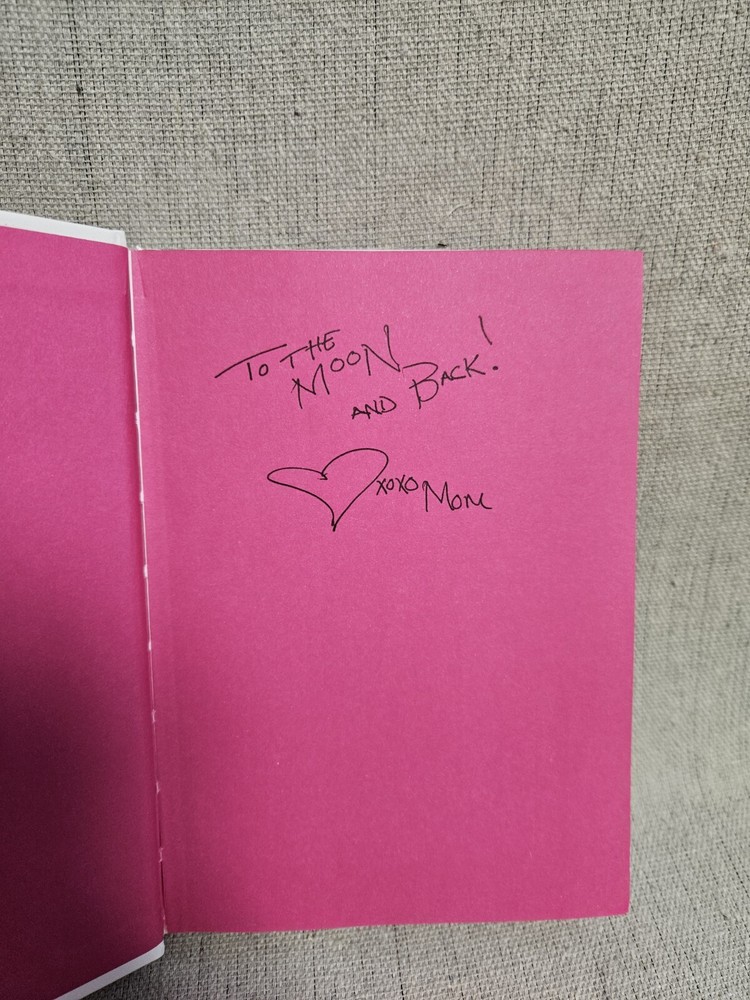 To THE
MOON
AND BACK!
xoxo Mom